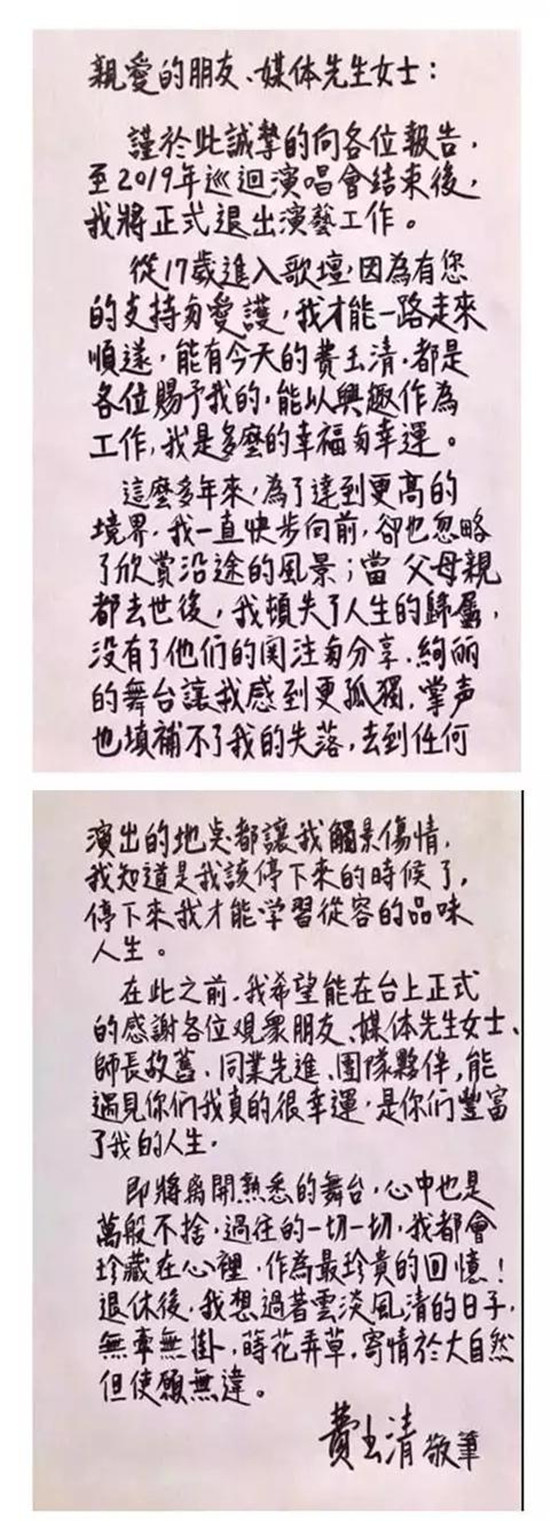 親愛的朋友、媒体先生女士：
謹於此誠摯的向各位報告，
至2019年巡迴演唱會結束後，
我將正式退出演藝工作。
從17歲進入歌壇，因為有您
的支持與愛護，我才能一路走來
順遂，能有今天的費玉清，都是
各位賜予我的，能以興趣作為
工作，我是多麼的幸福與幸運。
這麼多年來，為了達到更高的
境界，我一直快步向前，卻也忽略
了欣賞沿途的風景；當父母親
都去世後，我頓失了人生的歸屬，
没有了他們的関注與分享，絢丽
的舞台讓我感到更孤獨，掌声
也填補不了我的失落，去到任何
演出的地点都讓我觸景傷情，
我知道是我該停下來的時候了，
停下來我才能学習從容的品味
人生。
在此之前，我希望能在台上正式
的感謝各位观衆朋友、媒体先生女士、
師長故舊、同業先進、團隊夥伴，能
遇見你們我真的很幸運，是你們豐富
了我的人生。
即將离開熟悉的舞台，心中也是
萬般不捨，過往的一切一切，我都會
珍藏在心裡，作為最珍貴的回憶！
退休後，我想過著雲淡風清的日子，
無牽無掛，蒔花弄草，寄情於大自然
但使願無違。
費玉清 敬筆